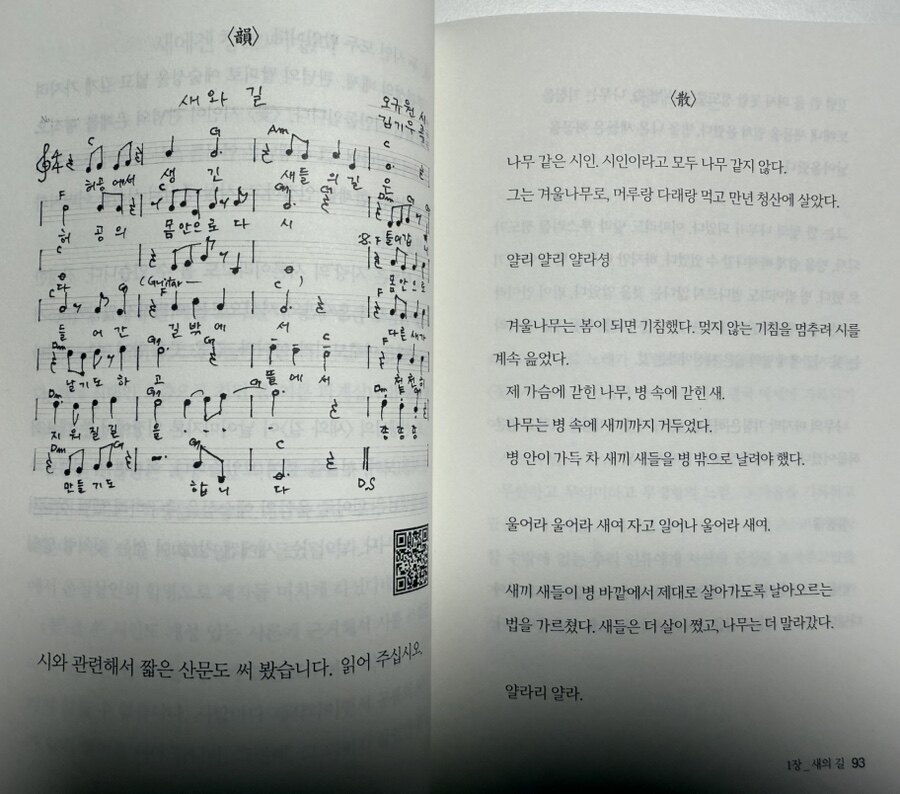 〈韻〉
새와 길
오규원 시
김기우 곡
C G Am C
허공에서 생긴 새들의 길은
F C G
허공의 몸안으로 다시
C F
들어갑
니
다 몸안으로
C G F C
들어간 길밖에서 다른새가
Dm G7 C F
날기도 하고 뜰에서 천천히
Dm G7 C Dm
지워질길을 종종종
Dm G G7 C
만들기도 합니다
D.S
시와 관련해서 짧은 산문도 써 봤습니다. 읽어 주십시오.
〈散〉
나무 같은 시인. 시인이라고 모두 나무 같지 않다.
그는 겨울나무로, 머루랑 다래랑 먹고 만년 청산에 살았다.
얄리 얄리 얄라성
겨울나무는 봄이 되면 기침했다. 멎지 않는 기침을 멈추려 시를
계속 읊었다.
제 가슴에 갇힌 나무, 병 속에 갇힌 새.
나무는 병 속에 새끼까지 거두었다.
병 안이 가득 차 새끼 새들을 병 밖으로 날려야 했다.
울어라 울어라 새여 자고 일어나 울어라 새여.
새끼 새들이 병 바깥에서 제대로 살아가도록 날아오르는
법을 가르쳤다. 새들은 더 살이 쪘고, 나무는 더 말라갔다.
얄라리 얄라.
1장_새의 길 93